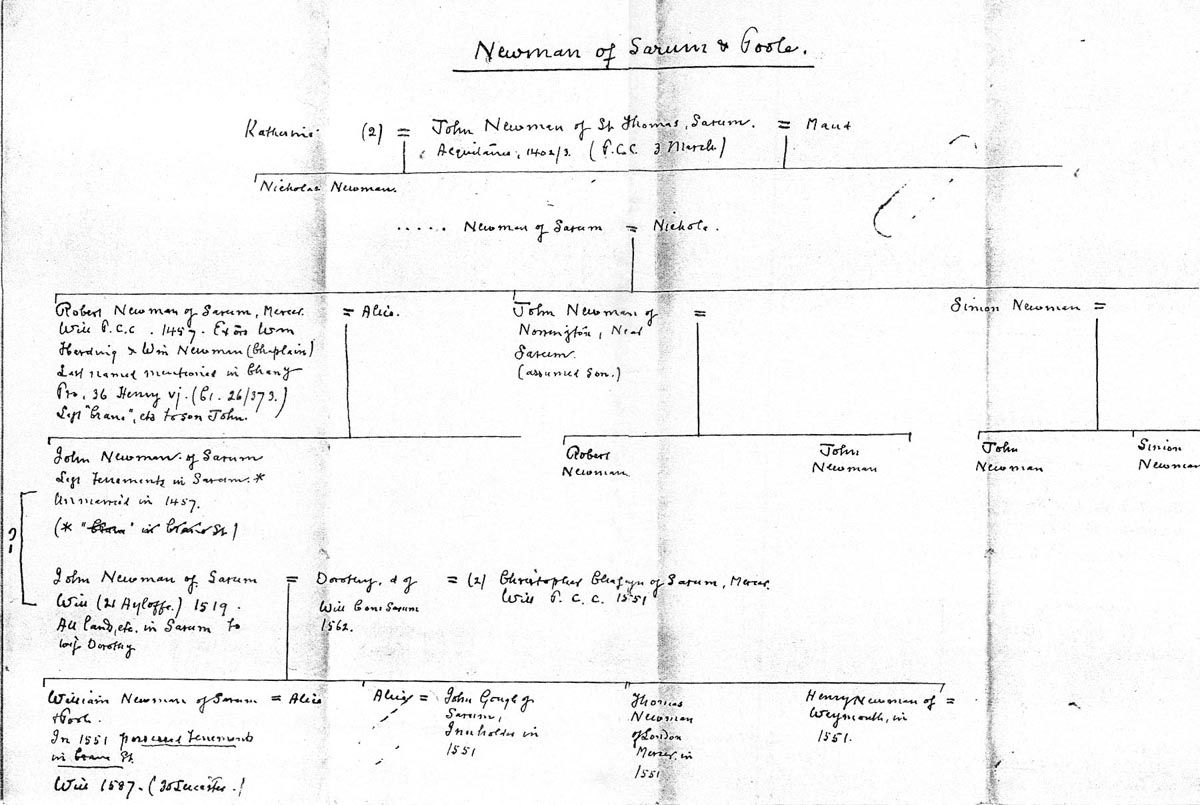 Newman of Sarum & Poole.
Katherine (2) = John Newman of St Thomas, Sarum. = Maud
Acquitance, 1402/3. (P.C.C. 3 March)
Nicholas Newman.
..... Newman of Sarum = Nichole.
Robert Newman of Sarum, Mercer. = Alice.
Will P.C.C. 1457. Exors Wm
Harding & Wm Newman (Chaplain)
Last named mentioned in Chancy
Pro. 36 Henry vj. (C1. 26/373.)
Left "Crane", etc to son John.
John Newman of =
Norrington, Near
Sarum.
(assumed son.)
Simon Newman =
John Newman of Sarum
Left Tenements in Sarum.*
Unmarried in 1457.
(* in St)
Robert
Newman
John
Newman
John
Newman
Simon
Newman
?
John Newman of Sarum = Dorothy, d of = (2) Christopher Chafyn of Sarum, Mercer.
Will (21 Ayloffe.) 1519.
All land, etc. in Sarum to
wife Dorothy
Will Cons Sarum
1562.
Will P.C.C. 1551
William Newman of Sarum = Alice
& Poole.
In 1551 possessed tenements
in Crane St.
Will 1587. (30 Leicester.)
Alice = John Gough of
Sarum,
Innholder in
1551
Thomas
Newman
of London
Mercer in
1551
Henry Newman of =
Weymouth, in
1551.